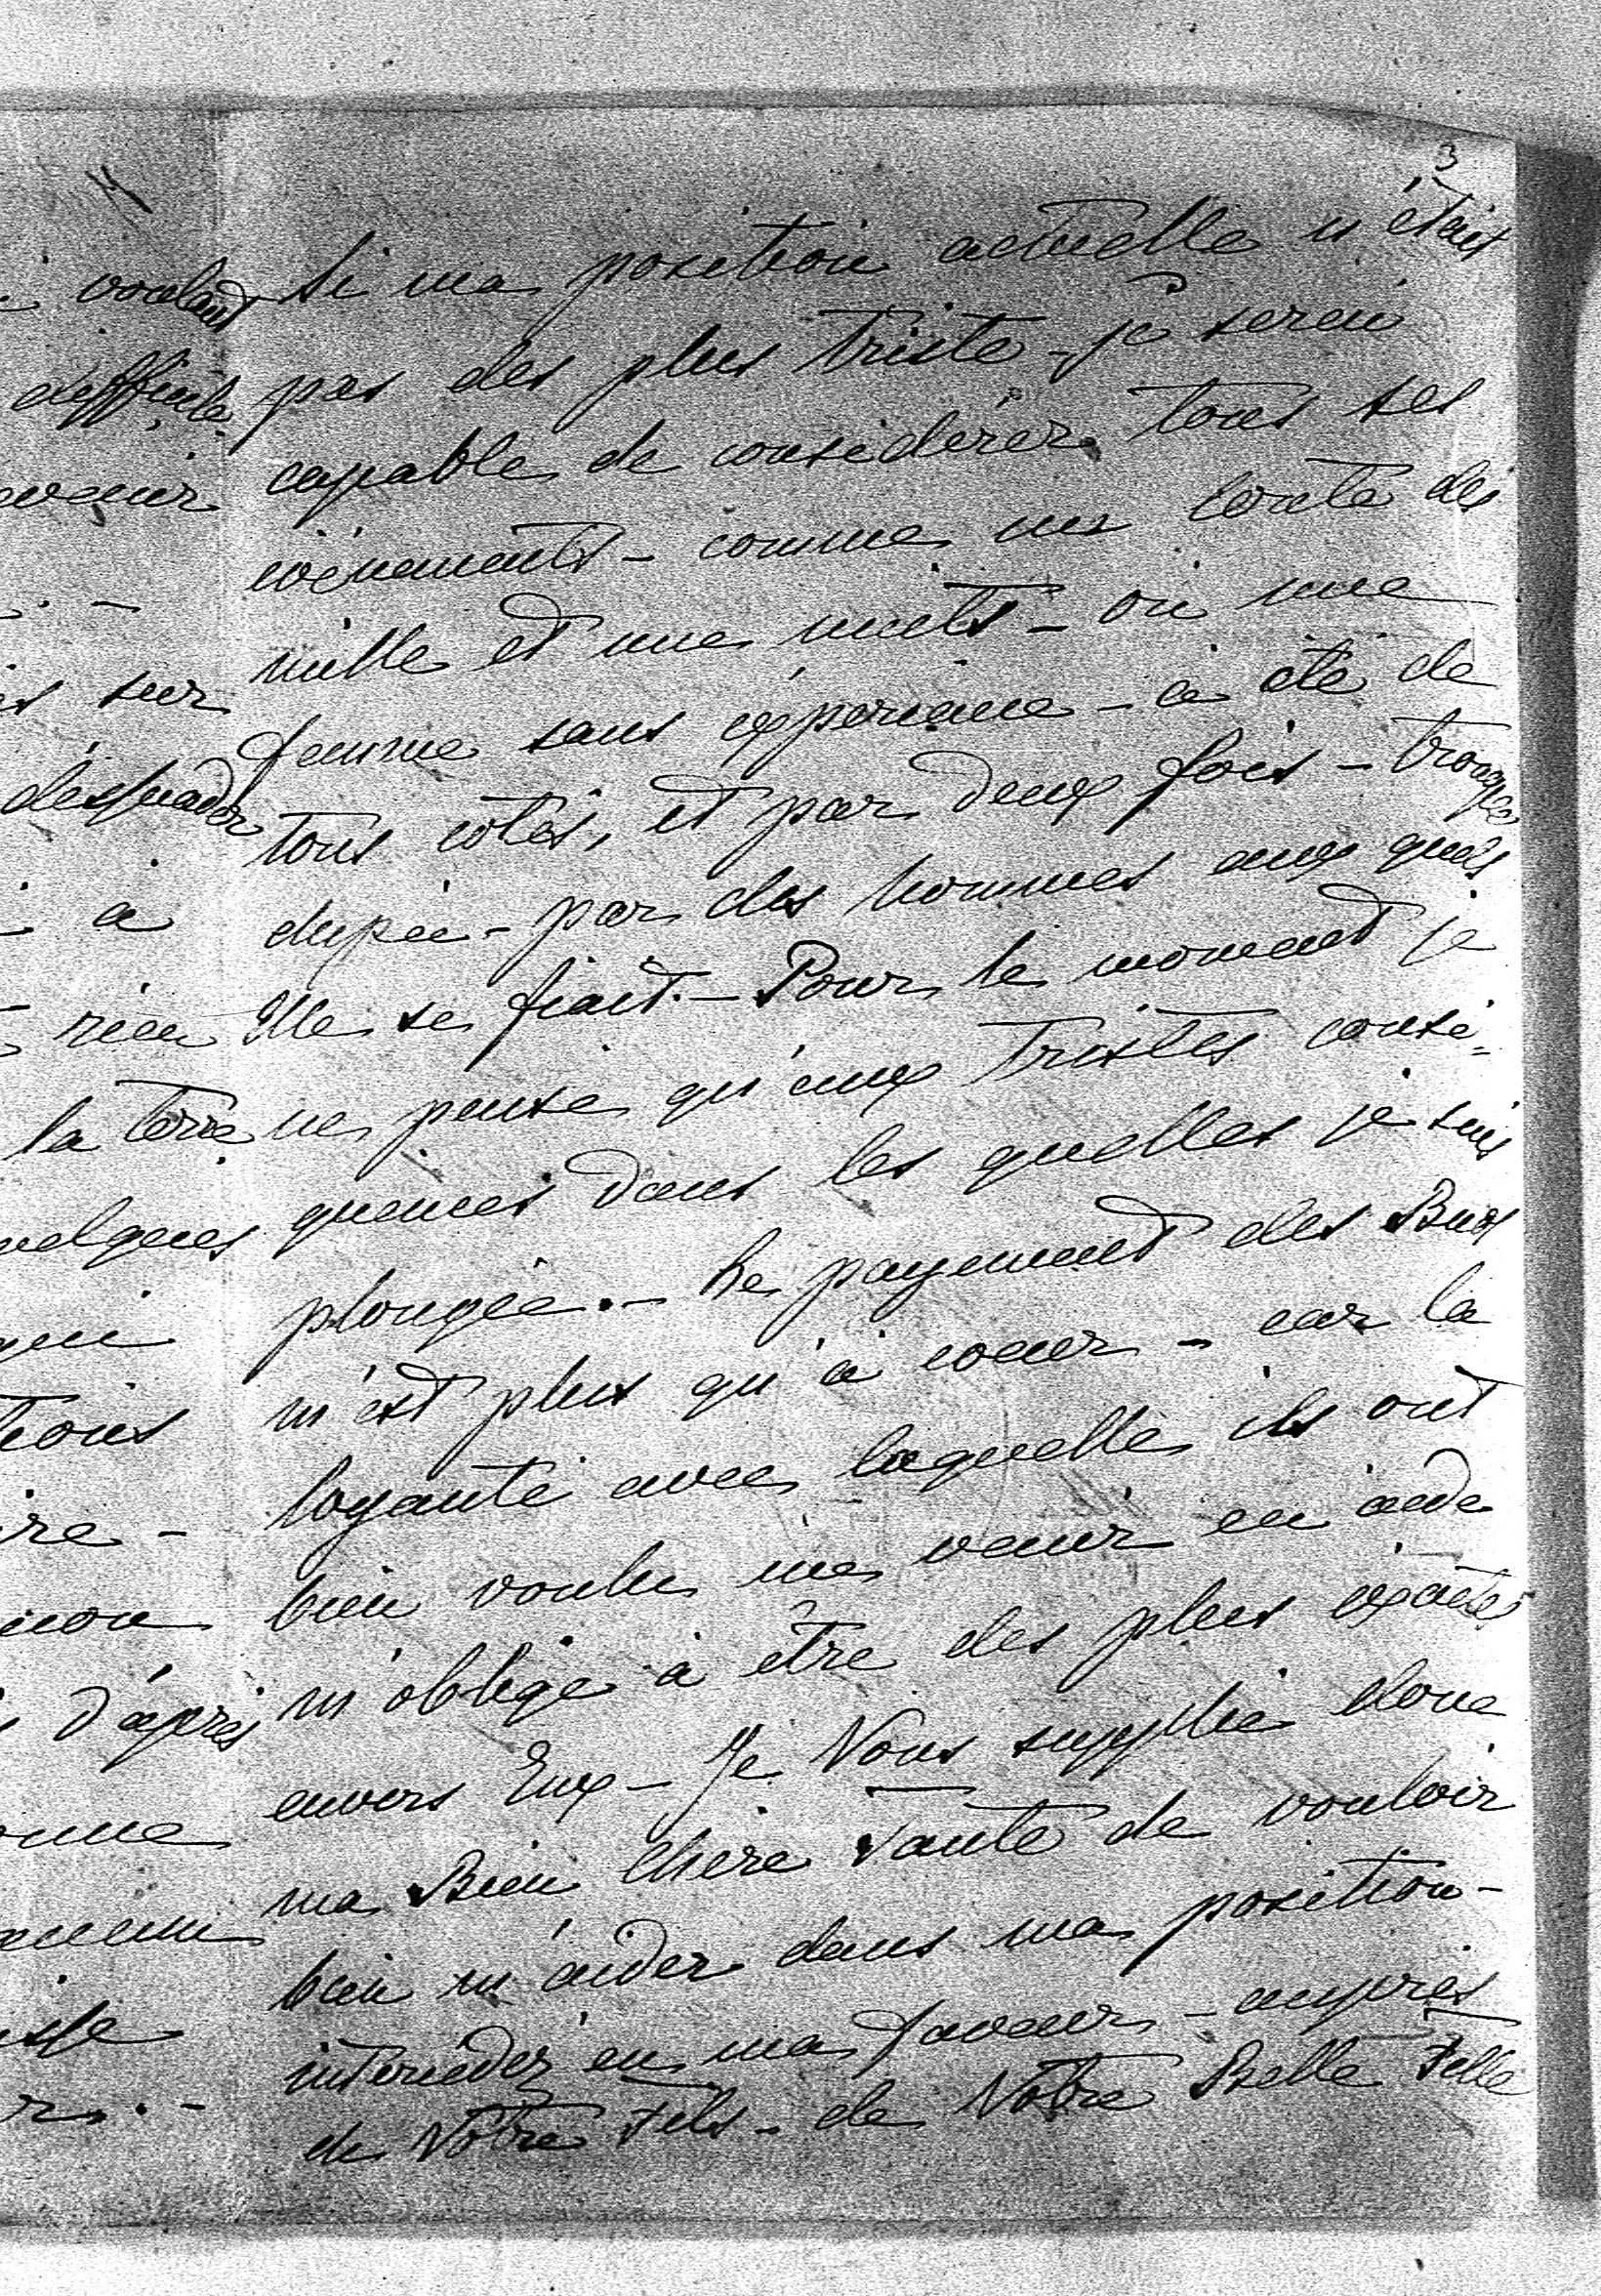 3
Si ma position actuelle n'était
pas des plus triste - je serai
capable de considérer tous ses
evènements - comme un conte des
mille et une nuits - où une
femme sans expérience - a été de
tous cotés, et par deux fois - trompée
dupée - par des hommes aux quels
Elle se fiait. - Pour le moment je
ne pense qu'aux tristes consé=
quences dans les quelles je suis
plongée. - Le payement des
m'est plus qu'à coeur - car la
loyauté avec laquelle ils ont
bien voulu me venir en aide
m'oblige à être des plus exactes
envers Eux - Je Vous supplie donc
ma Bien Chere Tante de vouloir
bien m'aider dans ma position -
interceder en ma faveur - auprès
de Votre Fils - de Votre Belle Fille
voulant
difficile
sur
a
rien
la terre
qui
d'après